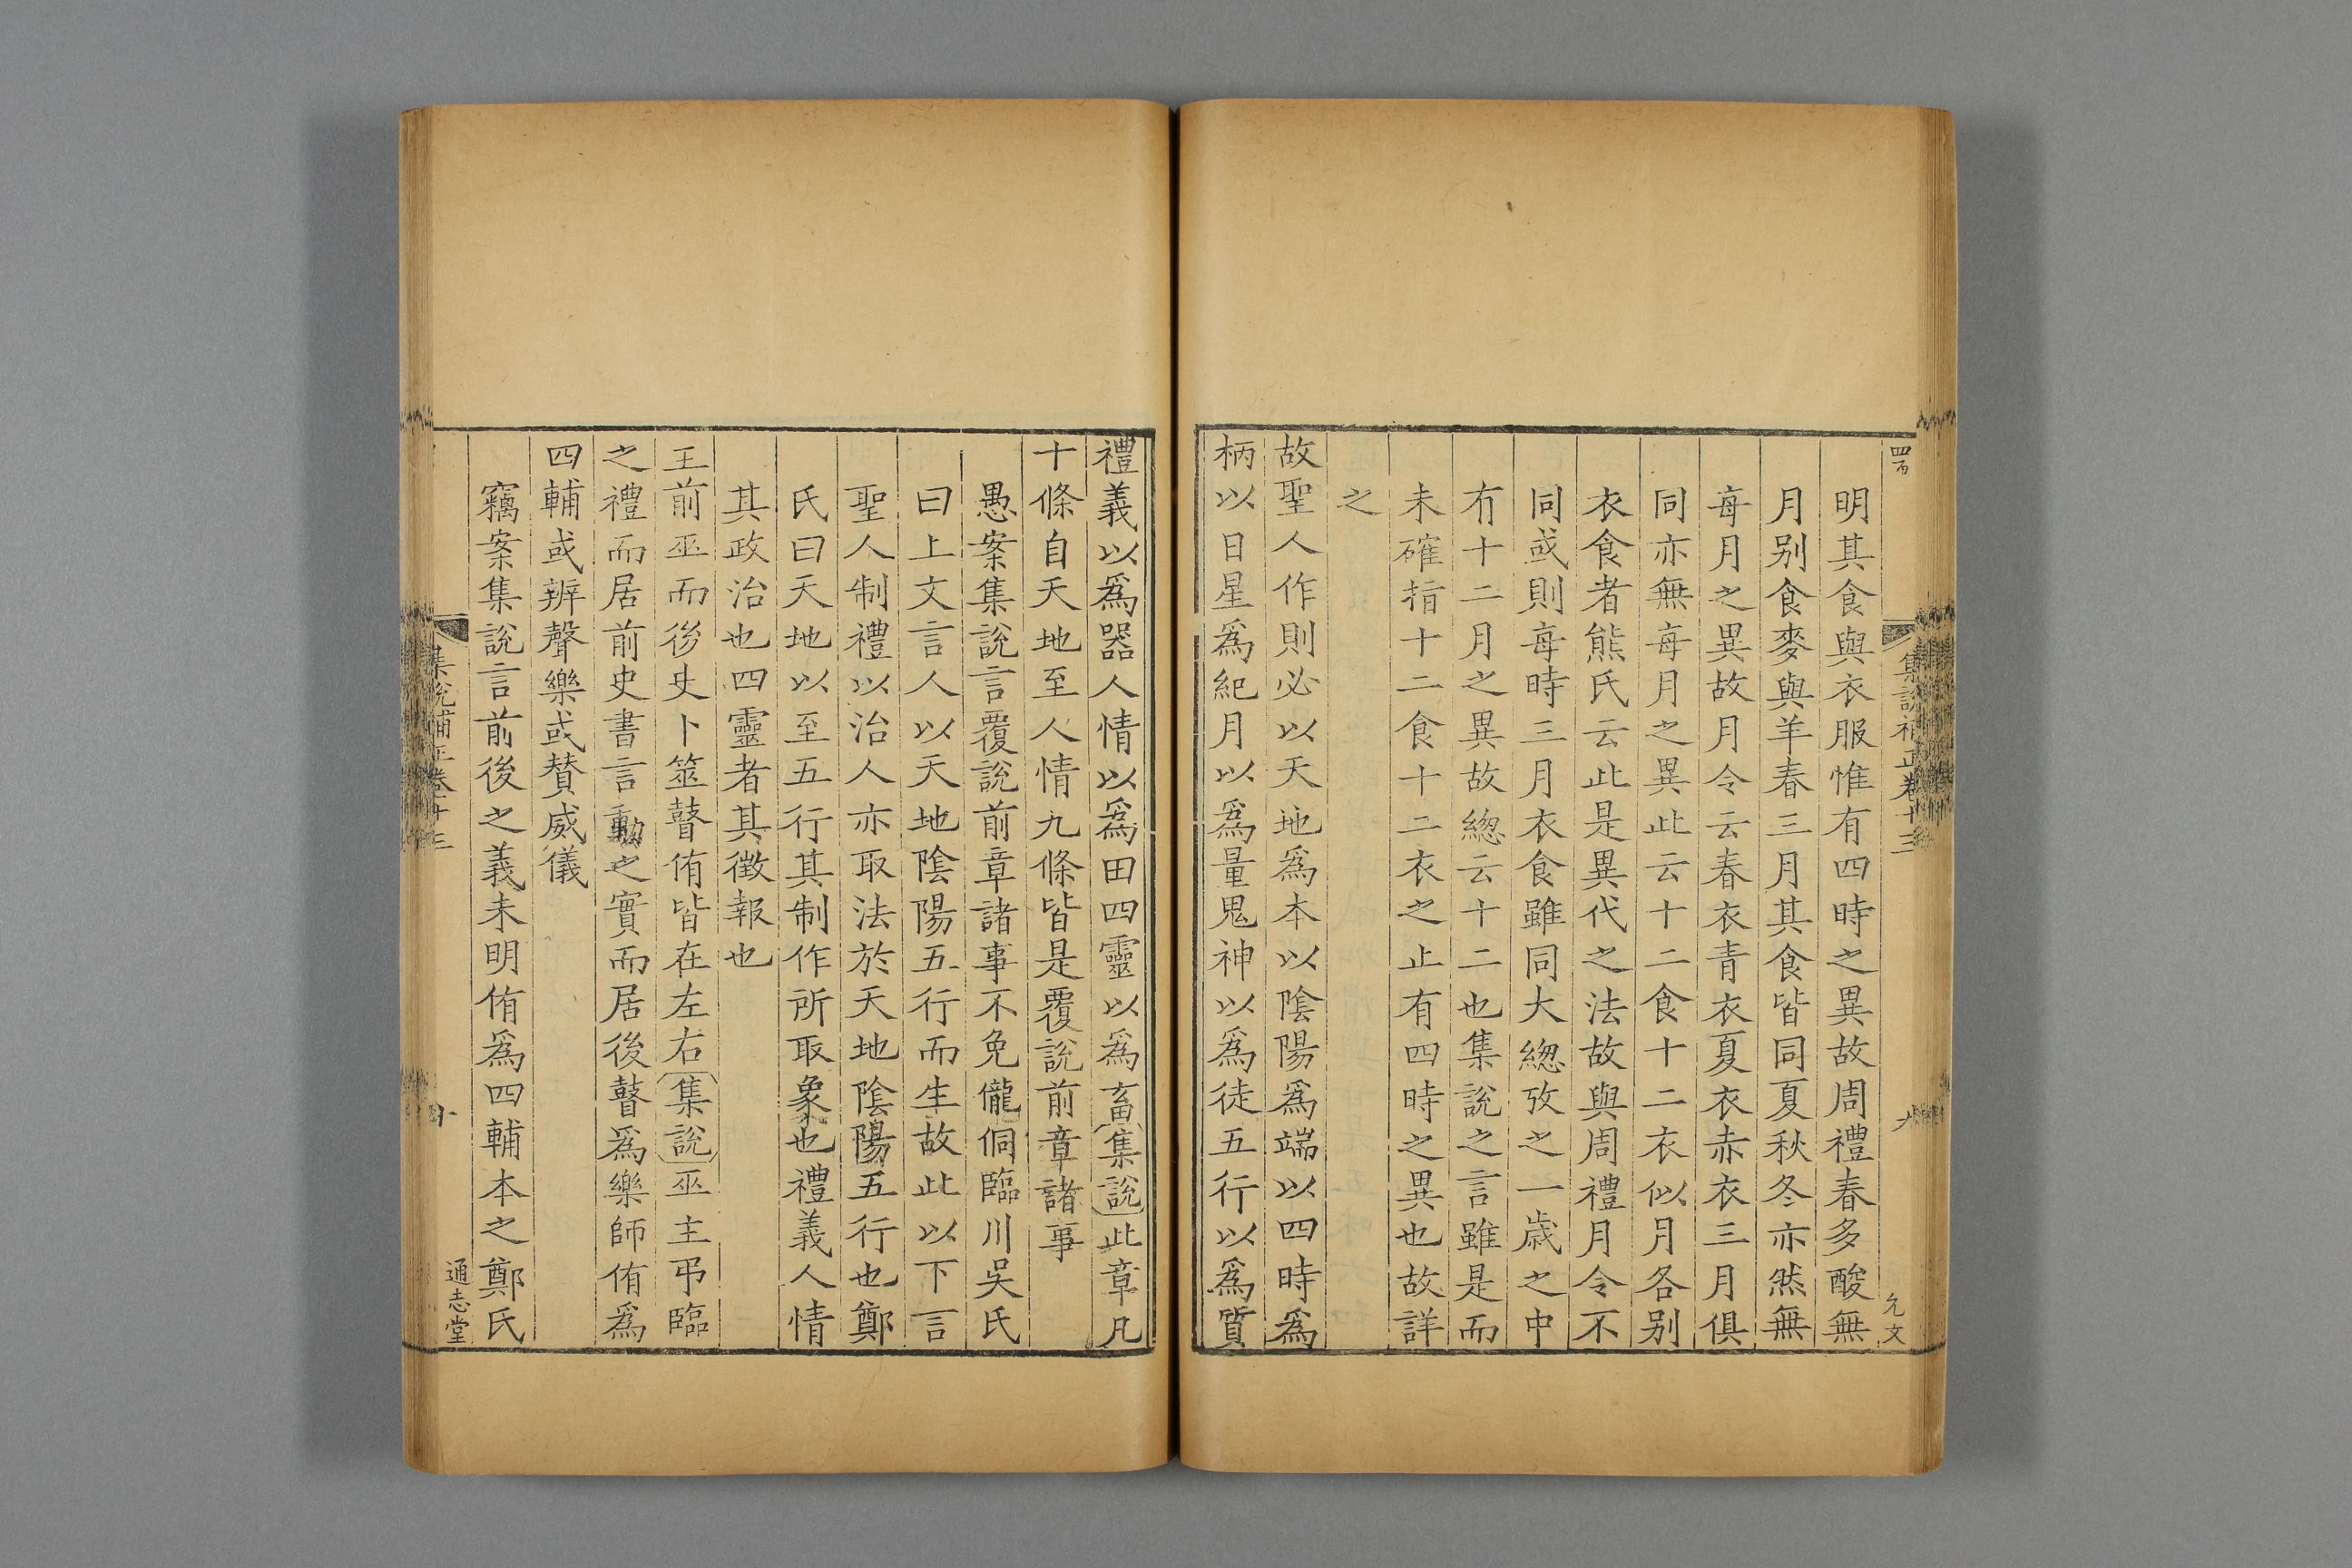 四百
集說補正卷十三
九
允文
明其食與衣服惟有四時之異故周禮春多酸無
月别食麥與羊春三月其食皆同夏秋冬亦然無
每月之異故月令云春衣青衣夏衣赤衣三月俱
同亦無每月之異此云十二食十二衣似月各别
衣食者熊氏云此是異代之法故與周禮月令不
同或則每時三月衣食雖同大緫攷之一歲之中
有十二月之異故緫云十二也集說之言雖是而
未確指十二食十二衣之止有四時之異也故詳
之
故聖人作則必以天地爲本以陰陽爲端以四時爲
柄以日星爲紀月以爲量鬼神以爲徒五行以爲質
禮義以爲器人情以爲田四靈以爲畜集說此章凡
十條自天地至人情九條皆是覆說前章諸事
愚案集說言覆說前章諸事不免儱侗臨川吳氏
曰上文言人以天地陰陽五行而生故此以下言
聖人制禮以治人亦取法於天地陰陽五行也鄭
氏曰天地以至五行其制作所取象也禮義人情
其政治也四靈者其徵報也
王前巫而後史卜筮瞽侑皆在左右集說巫主弔臨
之禮而居前史書言動之實而居後瞽爲樂師侑爲
四輔或辨聲樂或賛威儀
竊案集說言前後之義未明侑爲四輔本之鄭氏
集說補正卷十三
十
通志堂